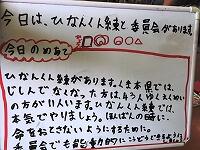 今日は、ひなんくん練と委員会があります。
今日のめあて
ひなんくん練があります。くま本県では、
じしんでなくなった方はもう1人ゆくえふめい
の方がいいます。ひなんくん練では、
本気でやりましょう。ほんばんの時に、
命をおとさないようにするために。
委員会でも能動的にこうどうできるように